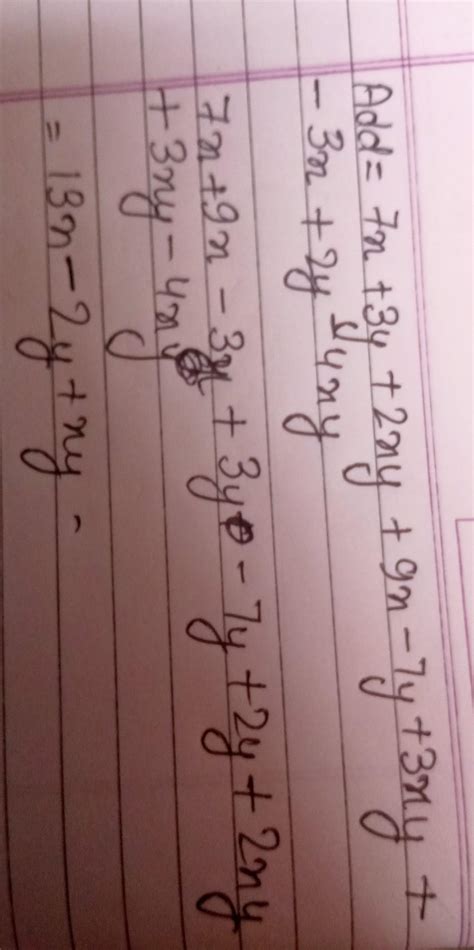 Add = 7x + 3y + 2xy + 9x - 7y + 3xy +
- 3x + 2y - 4xy
7x + 9x - 3x + 3y - 7y + 2y + 2xy
+ 3xy - 4xy
= 13x - 2y + xy -